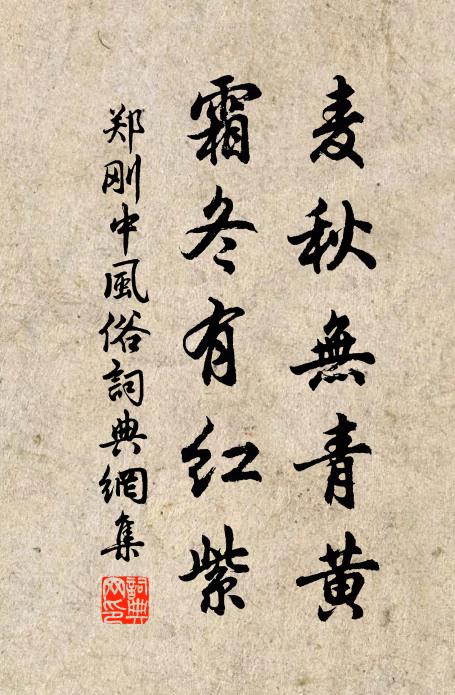 麦秋無青黄
霜冬有红紫
郑刚中風俗詞典網集
詞典
网印